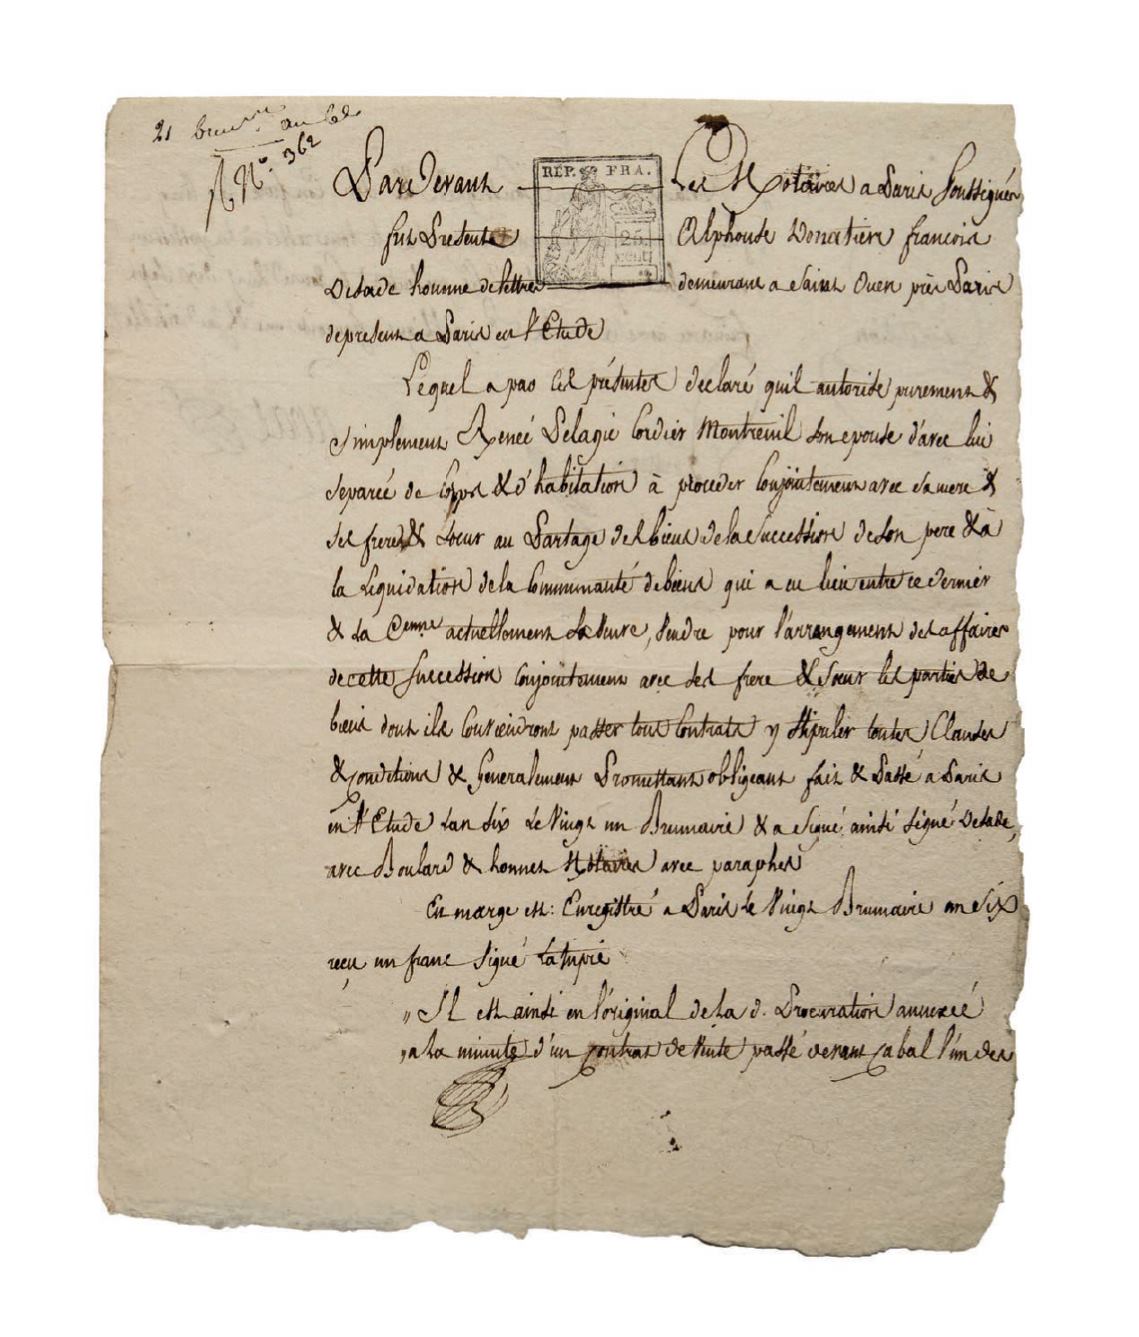 21 brum.re an 6e
N°. 362
REP. FRA.
25 cent
Pardevant Les Notaires a Paris Soussignés
fut Présente Alphonse Donatien francois
Desade homme de lettres demeurant a Saint Ouen près Paris
de present a Paris en l'Etude
Lequel a par ces présentes declaré quil autorise purement &
simplement Renée Pelagie Cordier Montreuil son epouse d'avec lui
separée de Corps & d'habitation à proceder Conjointement avec sa mere &
ses freres & Sœur au Partage des biens de la Succession de son pere & à
la Liquidation de la Communauté de biens qui a eu lieu entre ce dernier
& la Cenne actuellement sa Veuve, Vendre pour l'arrangement des affaires
de cette Succession Conjointement avec ses frere & Sœur les parties de
biens dont ils Conviendront passer tous Contrats y Stipuler toutes Clauses
& Conditions & Generalement Promettant obligeant fait & Passé a Paris
en l'Etude Lan Six Le Vingt un Brumaire & a Signé ainsi Signé Desade,
avec Boulard & honnet Notaires avec paraphes
En marge est: Enregistré a Paris le Vingt Brumaire an Six
reçu un franc Signé
" Il est ainsi en l'original de la d. Procuration annexée
" a la minute d'un Contrat de Vente passé devant Cabal l'un des